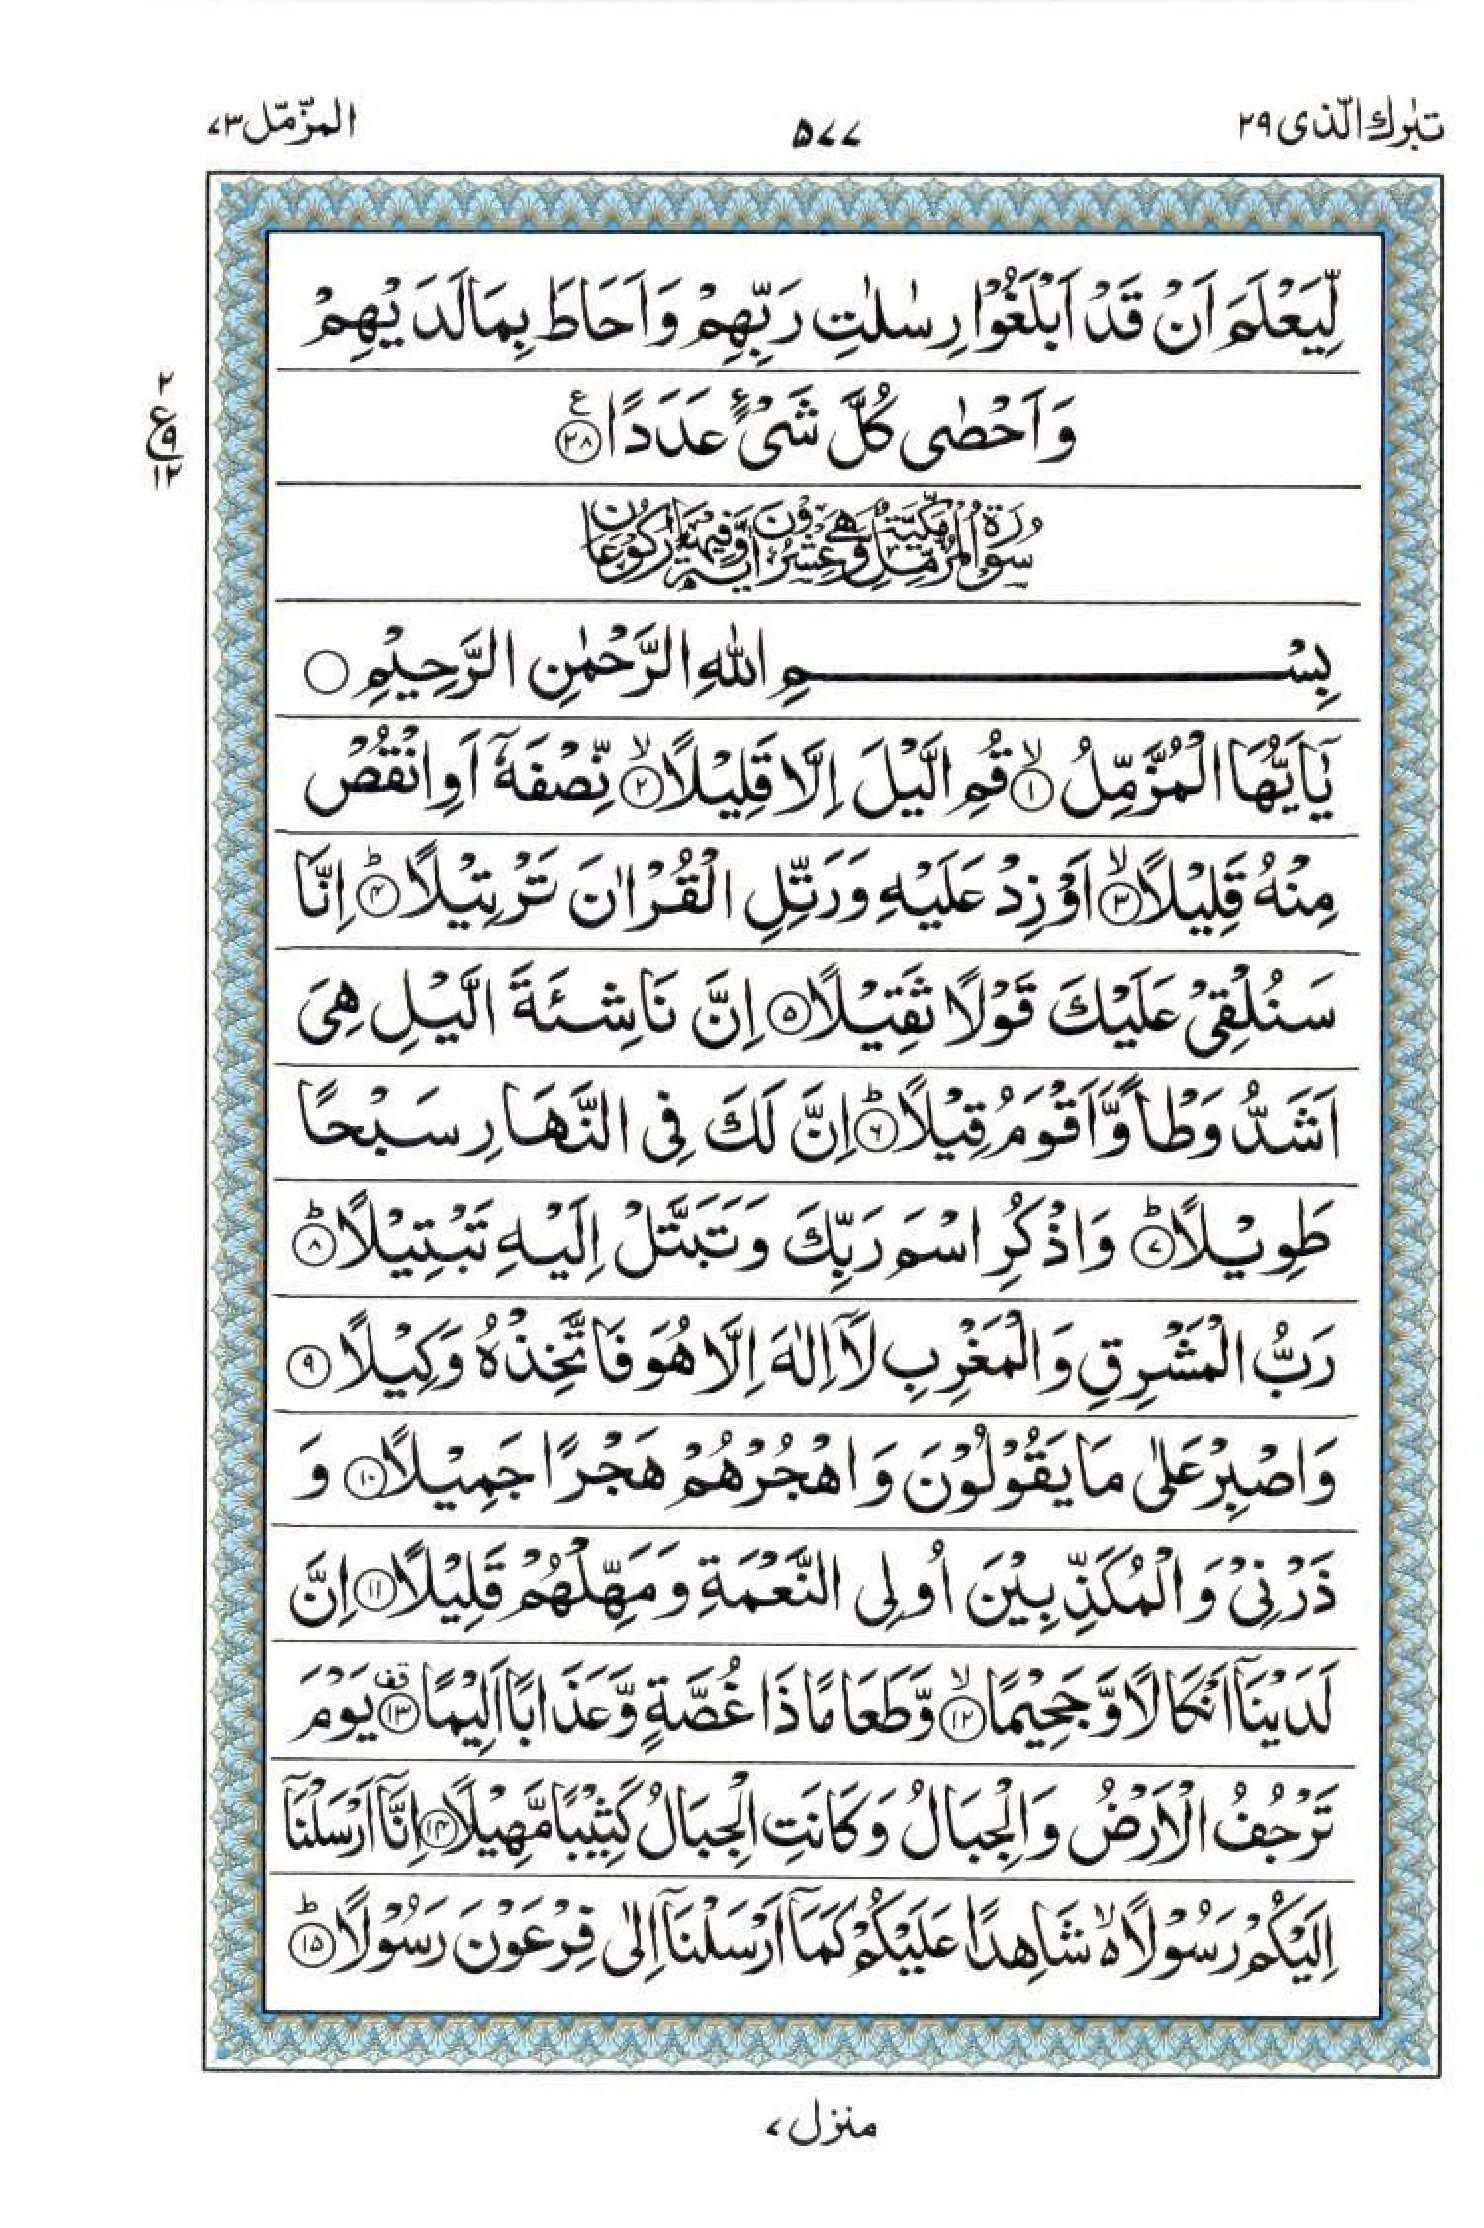 تبٰرك الّذی ٢٩
۵٧٧
المزّمّل ٧٣
لِّيَعْلَمَ اَنْ قَدْ اَبْلَغُوْا رِسٰلٰتِ رَبِّهِمْ وَاَحَاطَ بِمَا لَدَيْهِمْ
وَاَحْصٰى كُلَّ شَىْءٍ عَدَدًا ۧ ﴿٢٨﴾
٢
ع
٩
١٢
سُوْرَةُ الْمُزَّمِّلِ مَكِّيَّةٌ وَّهِيَ عِشْرُوْنَ اٰيَةً وَّفِيْهَا رُكُوْعَانِ
بِسْمِ اللّٰهِ الرَّحْمٰنِ الرَّحِيْمِ ○
يٰۤاَيُّهَا الْمُزَّمِّلُ ۙ﴿١﴾ قُمِ الَّيْلَ اِلَّا قَلِيْلًا ۙ﴿٢﴾ نِّصْفَهٗۤ اَوِ انْقُصْ
مِنْهُ قَلِيْلًا ۙ﴿٣﴾ اَوْ زِدْ عَلَيْهِ وَرَتِّلِ الْقُرْاٰنَ تَرْتِيْلًا ؕ﴿۴﴾ اِنَّا
سَنُلْقِيْ عَلَيْكَ قَوْلًا ثَقِيْلًا ﴿۵﴾ اِنَّ نَاشِئَةَ الَّيْلِ هِىَ
اَشَدُّ وَطْاً وَّاَقْوَمُ قِيْلًا ؕ﴿۶﴾ اِنَّ لَكَ فِى النَّهَارِ سَبْحًا
طَوِيْلًا ؕ﴿٧﴾ وَاذْكُرِ اسْمَ رَبِّكَ وَتَبَتَّلْ اِلَيْهِ تَبْتِيْلًا ؕ﴿٨﴾
رَبُّ الْمَشْرِقِ وَالْمَغْرِبِ لَاۤ اِلٰهَ اِلَّا هُوَ فَاتَّخِذْهُ وَكِيْلًا ﴿٩﴾
وَاصْبِرْ عَلٰى مَا يَقُوْلُوْنَ وَاهْجُرْهُمْ هَجْرًا جَمِيْلًا ﴿١٠﴾ وَ
ذَرْنِيْ وَالْمُكَذِّبِيْنَ اُولِى النَّعْمَةِ وَمَهِّلْهُمْ قَلِيْلًا ﴿١١﴾ اِنَّ
لَدَيْنَاۤ اَنْكَالًا وَّجَحِيْمًا ۙ﴿١٢﴾ وَّطَعَامًا ذَا غُصَّةٍ وَّعَذَابًا اَلِيْمًا قف ﴿١٣﴾ يَوْمَ
تَرْجُفُ الْاَرْضُ وَالْجِبَالُ وَكَانَتِ الْجِبَالُ كَثِيْبًا مَّهِيْلًا ﴿١۴﴾ اِنَّاۤ اَرْسَلْنَاۤ
اِلَيْكُمْ رَسُوْلًا ۙ٥ شَاهِدًا عَلَيْكُمْ كَمَاۤ اَرْسَلْنَاۤ اِلٰى فِرْعَوْنَ رَسُوْلًا ؕ﴿١۵﴾
منزل ٧